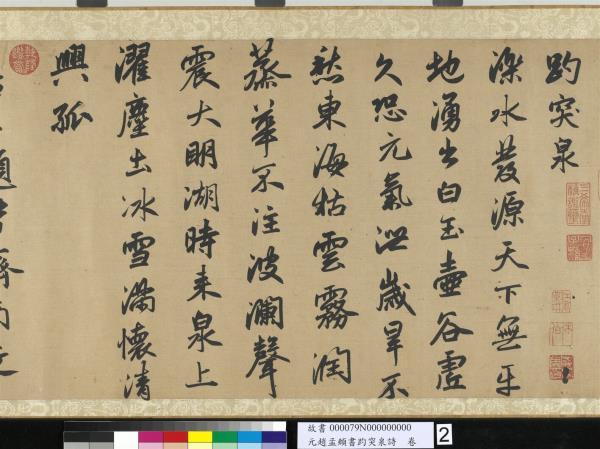 趵突泉
濼水發源天下無平
地湧出白玉壺谷虛
久恐元氣泄歲旱不
愁東海枯雲霧潤
蒸華不注波瀾聲
震大明湖時來泉上
濯塵土冰雪滿懷清
興孤
故書 000079N000000000
元趙孟頫書趵突泉詩 卷
2